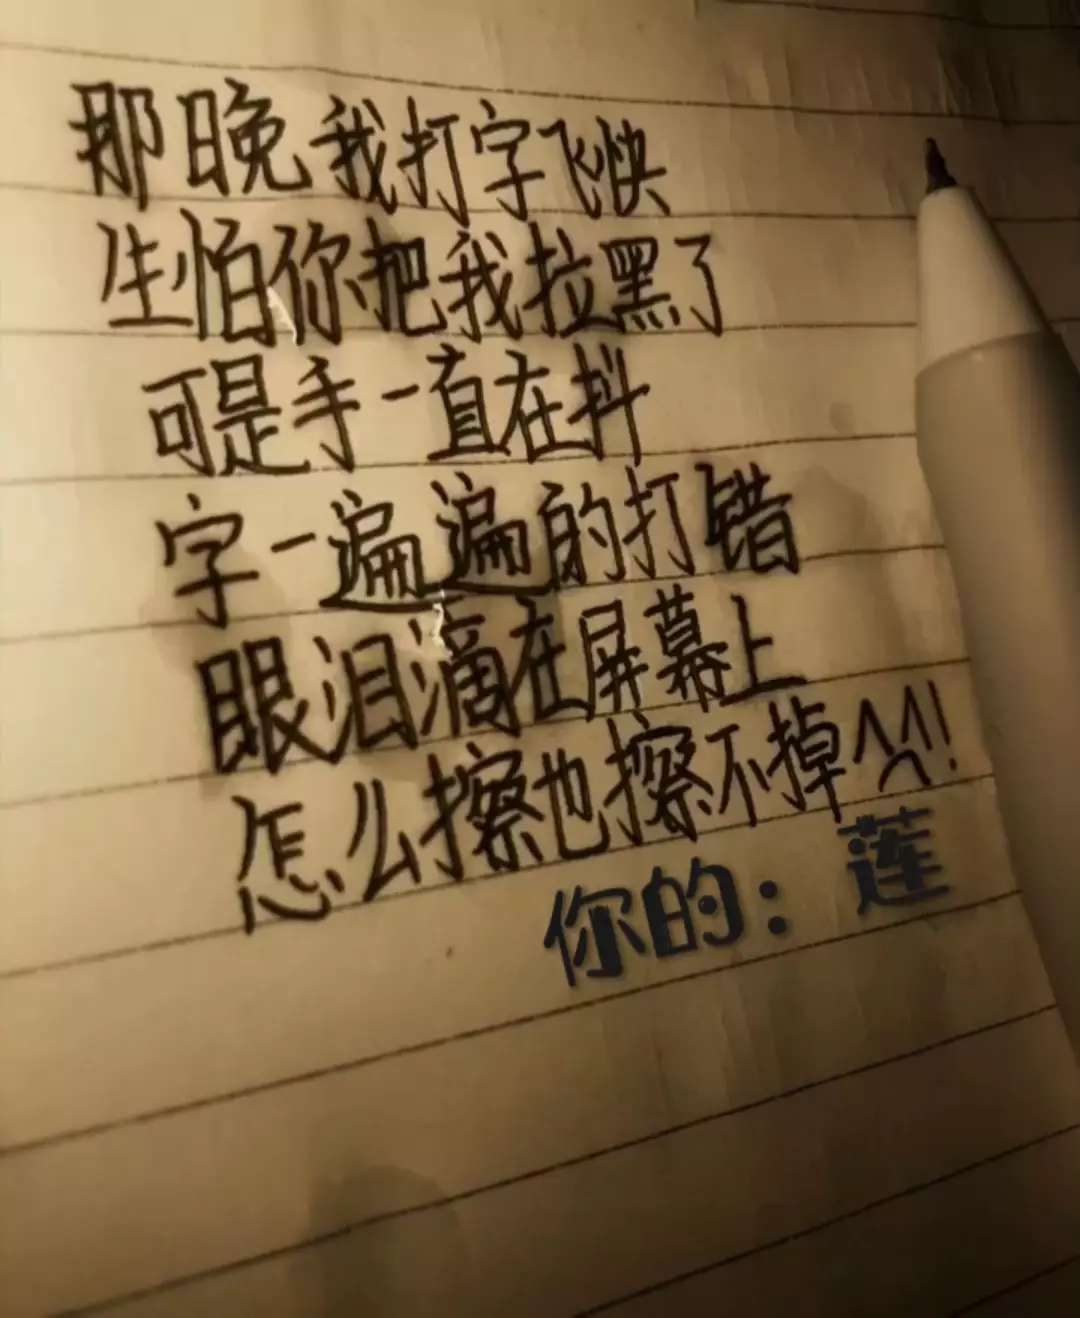 那晚我打字飞快
生怕你把我拉黑了
可是手一直在抖
字一遍遍的打错
眼泪滴在屏幕上
怎么擦也擦不掉^^!
你的：莲